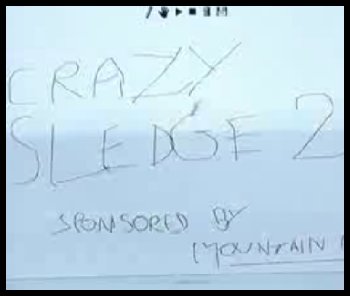 CRAZY
SLEDGE 2
SPONSORED BY
MOUNTAIN